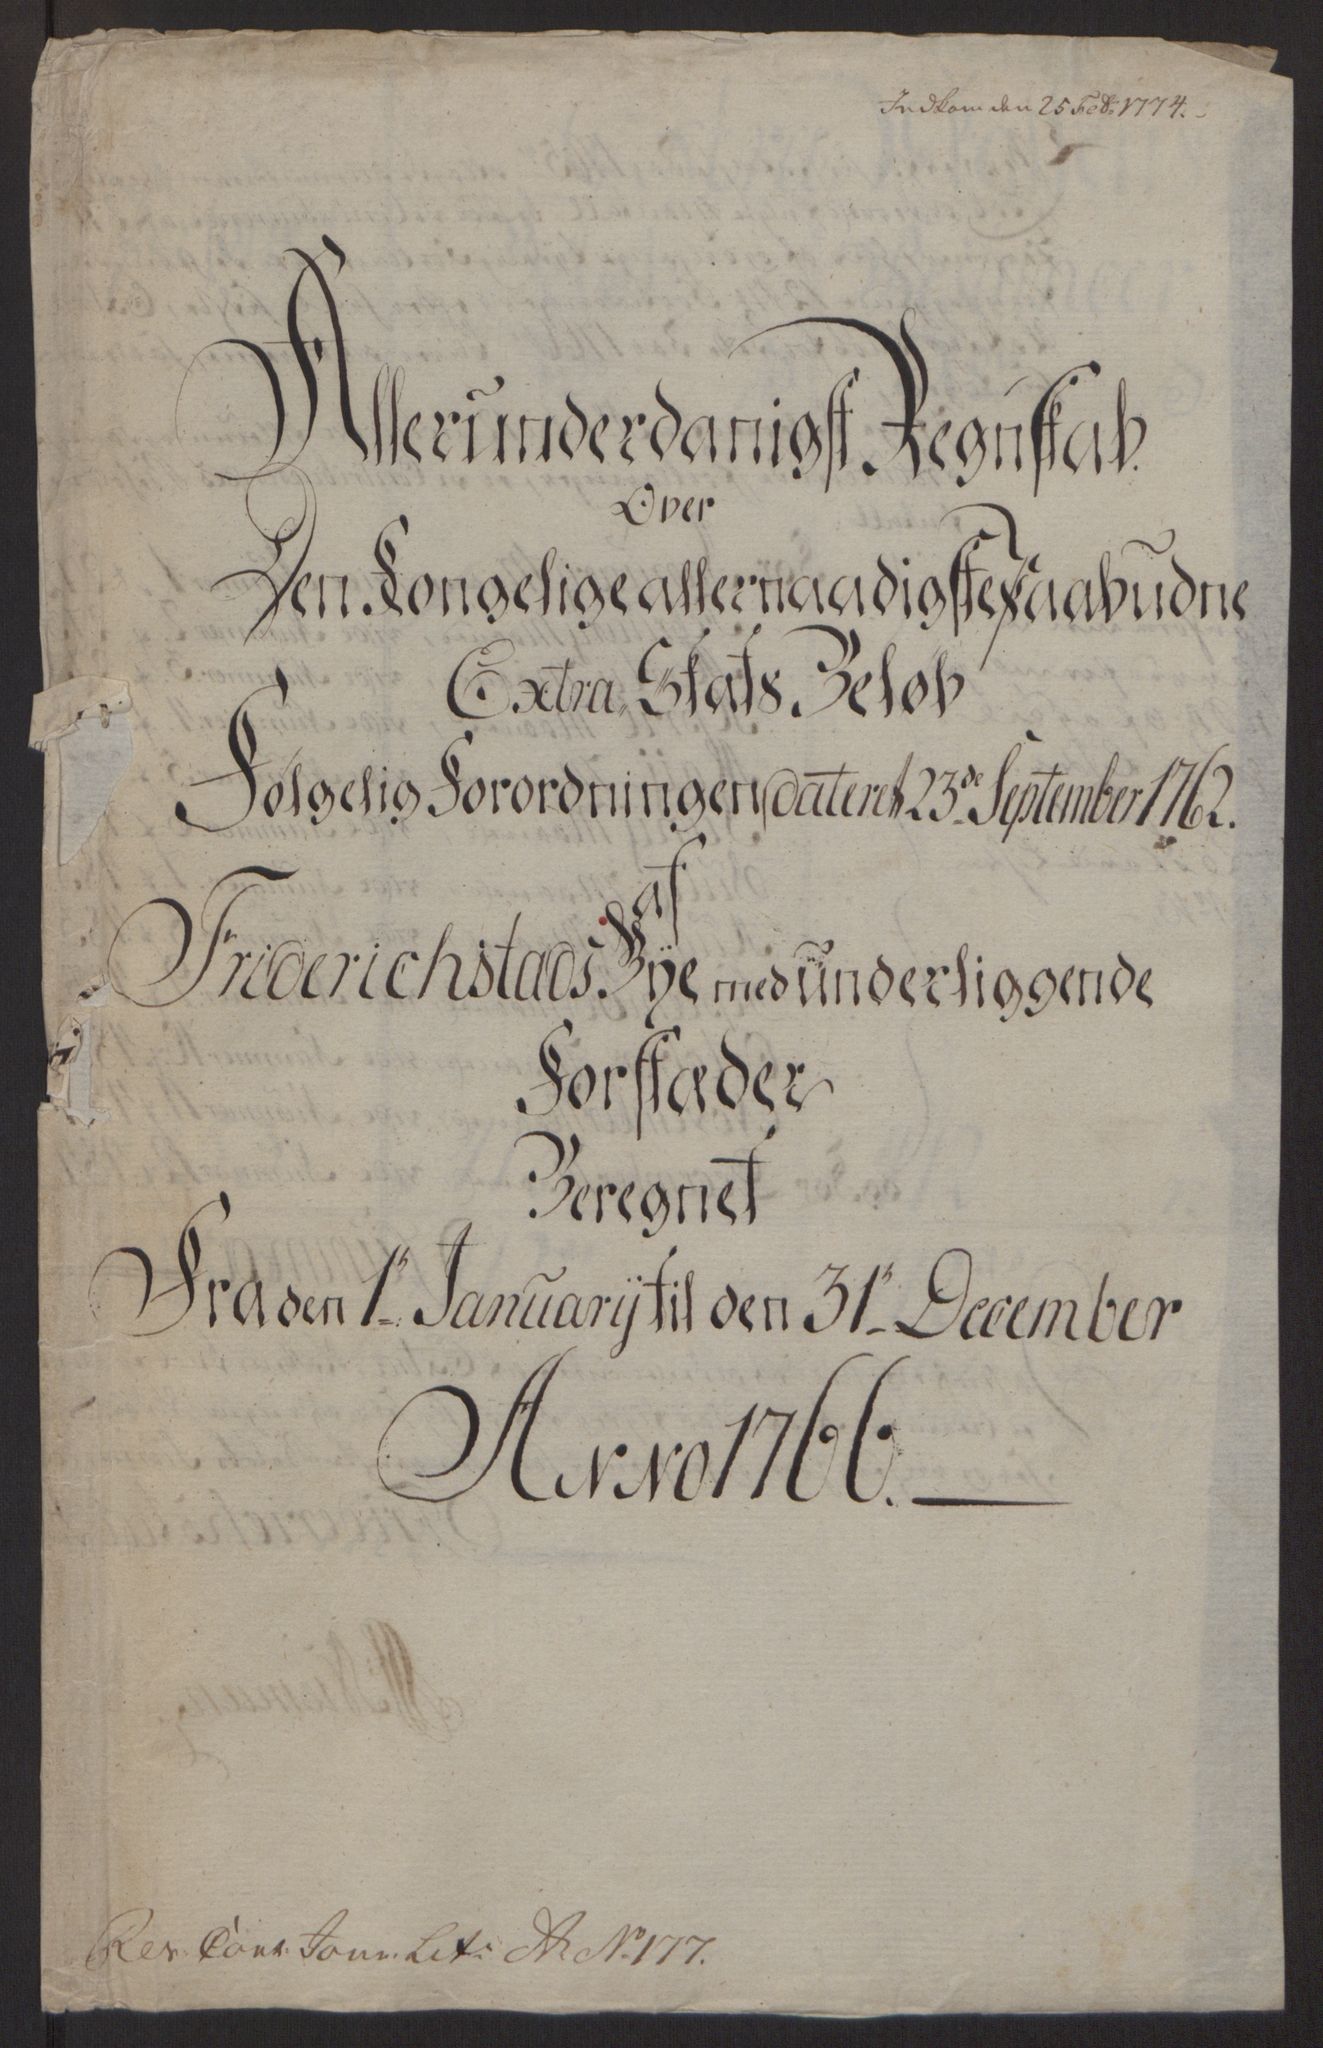 Indkom den 25 Feb: 1774.
Allerunderdanigst Regnskab
Over
Den Kongelige allernaadigste Paabudne
Extra Skats Beløb
Følgelig Forordningen dateret 23de September 1762.
af
Friderichstads Bÿe med underliggende
Forstæder
Beregnet
Fra den 1te Januarij til den 31te December
Anno 1766.
Rev. Cont. Journ. Lit. N° 177.